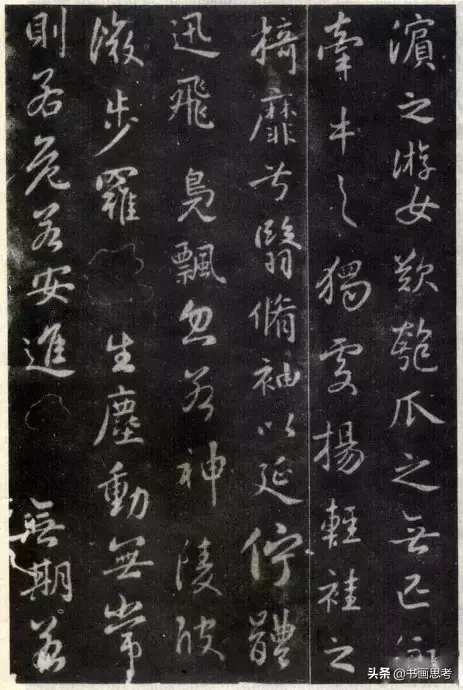 濱之游女歎匏瓜之無匹詠
牽牛之獨處揚輕袿之
掎靡兮翳脩袖以延佇體
迅飛鳧飄忽若神陵波
微步羅生塵動無常
則若危若安進無期若
头条 @书画思考